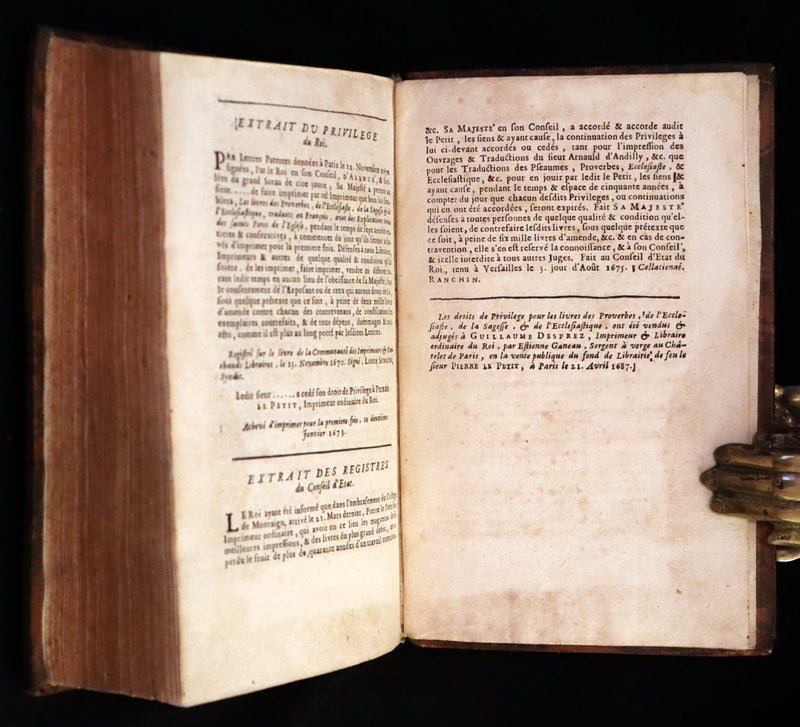 EXTRAIT DU PRIVILEGE
du Roi.
PAR Lettres Patentes données à Paris le 12. Novembre
signées, Par le Roi en son Conseil, D'ALENCE', & scel-
lées du grand Sceau de cire jaune, Sa Majesté a permis au
sieur..... de faire imprimer par tel Imprimeur que bon lui sem-
blera, Les livres des Proverbes, de l'Ecclesiaste, de la Sagesse & de
l'Ecclesiastique, traduits en François, avec des Explications tirées
des saints Peres de l'Eglise, pendant le temps de sept années en-
tieres & consecutives, à commencer du jour qu'ils seront ache-
vés d'imprimer pour la premiere fois. Défenses à tous Libraires,
Imprimeurs & autres de quelque qualité & condition qu'ils
soient, de les imprimer, faire imprimer, vendre ni débiter du-
rant ledit temps en aucun lieu de l'obéissance de sa Majesté, sans
le consentement de l'Exposant ou de ceux qui auront droit de lui,
sous quelque prétexte que ce soit, à peine de deux mille livres
d'amende contre chacun des contrevenans, de confiscation des
exemplaires contrefaits, & de tous dépens, dommages & inte-
rêts, comme il est plus au long porté par lesdites Lettres.
Registré sur le livre de la Communauté des Imprimeurs & Mar-
chands Libraires, le 13. Novembre 1670. Signé, LOUIS SEVESTRE,
Syndic.
Ledit sieur ....... a cedé son droit de Privilege à PIERRE
LE PETIT, Imprimeur ordinaire du Roi.
Achevé d'imprimer pour la premiere fois, le deuxième
Janvier 1673.
EXTRAIT DES REGISTRES
du Conseil d'Etat.
LE Roi ayant été informé que dans l'embrasement du College
de Montaigu, arrivé le 21. Mars dernier, Pierre le Petit son
Imprimeur ordinaire, qui avoit en ce lieu les magasins de ses
meilleures impressions, & des livres du plus grand débit, avoit
perdu le fruit de plus de quarante années d'un travail continuel,
&c. SA MAJESTE' en son Conseil, a accordé & accorde audit
le Petit, les siens & ayant cause, la continuation des Privileges à
lui ci-devant accordés ou cedés, tant pour l'impression des
Ouvrages & Traductions du sieur Arnauld d'Andilly, &c. que
pour les Traductions des Pseaumes, Proverbes, Ecclesiaste, &
Ecclesiastique, &c. pour en jouir par ledit le Petit, les siens &
ayant cause, pendant le temps & espace de cinquante années, à
compter du jour que chacun desdits Privileges, ou continuations
qui en ont été accordées, seront expirés. Fait SA MAJESTE'
défenses à toutes personnes de quelque qualité & condition qu'el-
les soient, de contrefaire lesdits livres, sous quelque prétexte que
ce soit, à peine de six mille livres d'amende, &c. & en cas de con-
travention, elle s'en est reservé la connoissance, & à son Conseil,
& icelle interdite à tous autres Juges. Fait au Conseil d'Etat du
Roi, tenu à Versailles le 3. jour d'Août 1675. Collationné.
RANCHIN.
Les droits de Privilege pour les livres des Proverbes, de l'Eccle-
siaste, de la Sagesse, & de l'Ecclesiastique, ont été vendus &
adjugés à GUILLAUME DESPREZ, Imprimeur & Libraire
ordinaire du Roi, par Estienne Ganeau, Sergent à verge au Châ-
telet de Paris, en la vente publique du fond de Librairie de feu le
sieur PIERRE LE PETIT, à Paris le 21. Avril 1687.